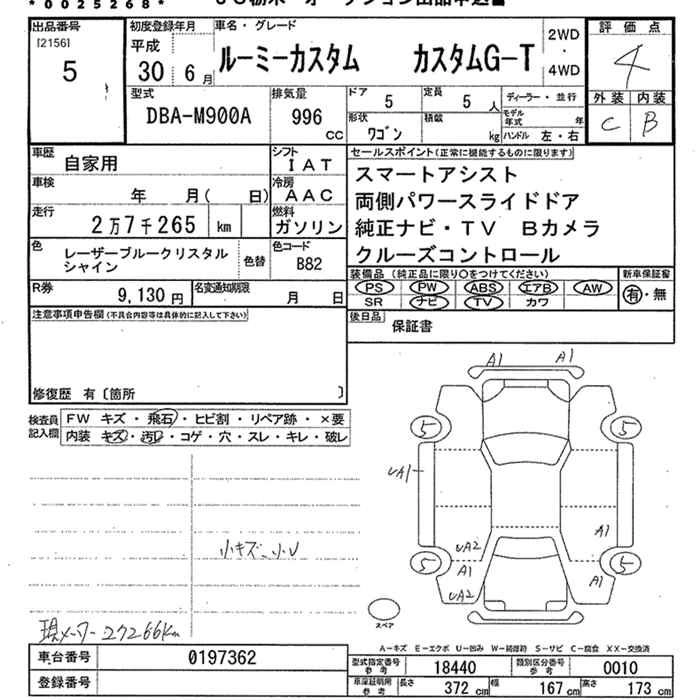 *0025268*
出品番号
[2156]
5
初度登録年月
平成
30 6月
車名・グレード
ルーミーカスタム カスタムG-T
2WD
・
4WD
評価点
4
外装 内装
C B
型式
DBA-M900A
排気量
996
CC
ドア
5
定員
5人
ディーラー・並行
形状
ワゴン
積載
kg
モデル年式
年
ハンドル 左・右
車歴
自家用
シフト
IAT
車検
年 月( 日)
冷房
AAC
走行
2万7千265 km
燃料
ガソリン
色
レーザーブルークリスタル
シャイン
色替
色コード
B82
R券
9,130円
名変通知期限
月 日
セールスポイント(正常に機能するものに限ります)
スマートアシスト
両側パワースライドドア
純正ナビ・TV Bカメラ
クルーズコントロール
装備品(純正品に限り○をつけてください)
PS PW ABS エアB AW
SR ナビ TV カワ
新車保証書
有・無
後日品
保証書
注意事項申告欄(不具合内容等は具体的に記入して下さい)
修復歴 有〔箇所 〕
検査員
記入欄
FW キズ・飛石・ヒビ割・リペア跡・×要
内装 キズ・汚レ・コゲ・穴・スレ・キレ・破レ
小キズ、小U
現メーター27266km
A1 A1
5 5
UA1
A1
UA2
A1
UA2
A1
5 5
スペア
A-キズ E-エクボ U-凹み W-補修跡 S-サビ C-腐食 XX-交換済
車台番号
0197362
登録番号
型式指定番号
参考
18440
類別区分番号
参考
0010
車庫証明用
参考
長さ
372 cm
幅
167 cm
高さ
173 cm